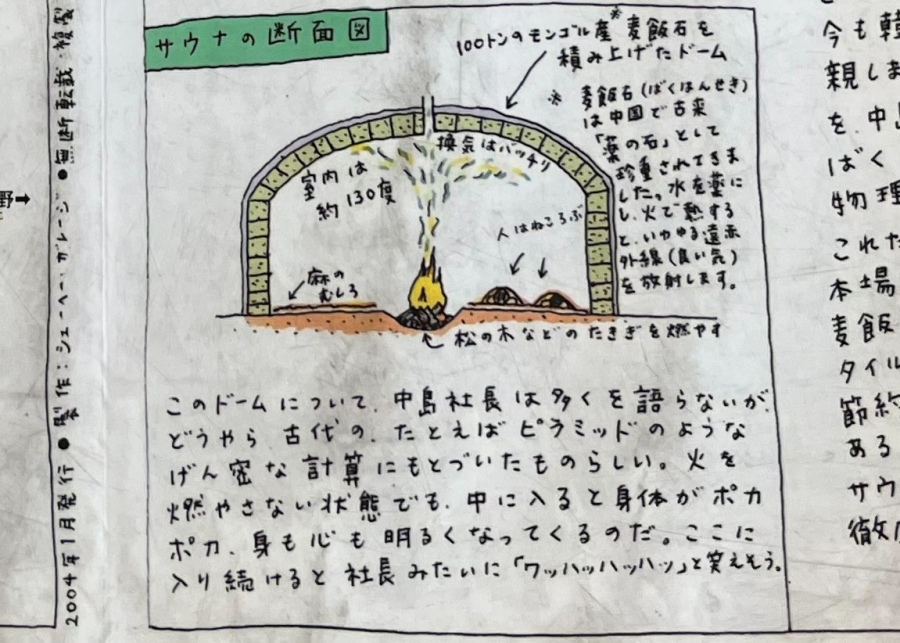 サウナの断面図
100トンのモンゴル産※麦飯石を
積み上げたドーム
※ 麦飯石(ばくはんせき)
は中国で古来
「薬の石」として
珍重されてきま
した。水を薬に
し、火で熱する
と、いわゆる遠赤
外線(良い気)
を放射します。
換気はバッチリ
室内は
約130度
人はねころぶ
麻の
むしろ
松の木などのたきぎを燃やす
このドームについて、中島社長は多くを語らないが、
どうやら、古代の、たとえばピラミッドのような
げん密な計算にもとづいたものらしい。火を
燃やさない状態でも、中に入ると身体がポカ
ポカ、身も心も明るくなってくるのだ。ここに
入り続けると社長みたいに「ワッハッハッハッ」と笑えそう。
2004年1月発行 ● 製作:シェーヘー・ガレージ ● 無断転載・複製
野➡
今も韓
親しま
を、中
ばく
物理
これた
本場
麦飯
タイル
節約
ある
サウ
徹底